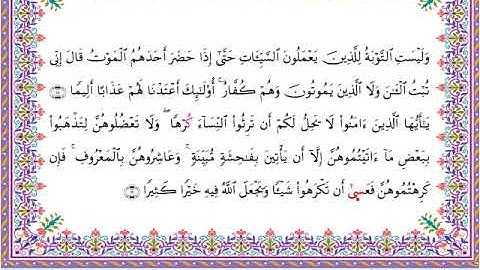 وَلَيْسَتِ ٱلتَّوْبَةُ لِلَّذِينَ يَعْمَلُونَ ٱلسَّيِّـَٔاتِ حَتَّىٰٓ إِذَا حَضَرَ أَحَدَهُمُ ٱلْمَوْتُ قَالَ إِنِّى
تُبْتُ ٱلْـَٰٔنَ وَلَا ٱلَّذِينَ يَمُوتُونَ وَهُمْ كُفَّارٌ ۚ أُو۟لَـٰٓئِكَ أَعْتَدْنَا لَهُمْ عَذَابًا أَلِيمًا ١٨
يَـٰٓأَيُّهَا ٱلَّذِينَ ءَامَنُوا۟ لَا يَحِلُّ لَكُمْ أَن تَرِثُوا۟ ٱلنِّسَآءَ كَرْهًا ۖ وَلَا تَعْضُلُوهُنَّ لِتَذْهَبُوا۟
بِبَعْضِ مَآ ءَاتَيْتُمُوهُنَّ إِلَّآ أَن يَأْتِينَ بِفَـٰحِشَةٍ مُّبَيِّنَةٍ ۚ وَعَاشِرُوهُنَّ بِٱلْمَعْرُوفِ ۚ فَإِن
كَرِهْتُمُوهُنَّ فَعَسَىٰٓ أَن تَكْرَهُوا۟ شَيْـًٔا وَيَجْعَلَ ٱللَّهُ فِيهِ خَيْرًا كَثِيرًا ١٩